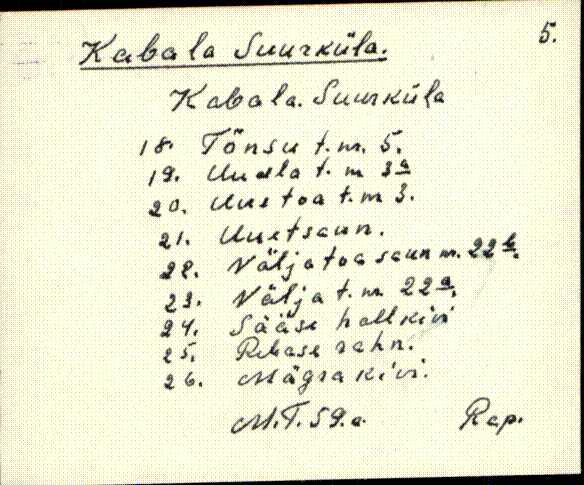 5.
Kabala Suurküla.
Kabala. Suurküla
18. Tõnsu t. m. 5.
19. Uudla t. m 3a
20. Uuetoa t. m 3.
21. Uuetsaun.
22. Väljatoa saun m. 22b.
23. Välja t. m 22a.
24. Sääse hallkivi
25. Rebase rahn.
26. Mägra kivi.
M.T. 59.a. Rap.